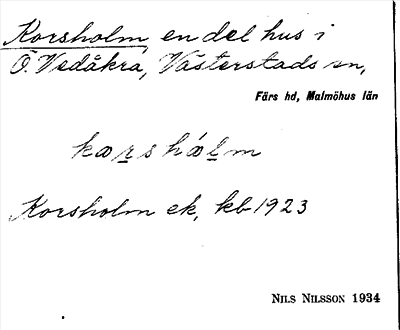 Korsholm, en del hus i
Ö. Vedåkra, Västerstads sn,
Färs hd, Malmöhus län
kɷr̲shɷ́l̲m
Korsholm ek, kb 1923
NILS NILSSON 1934